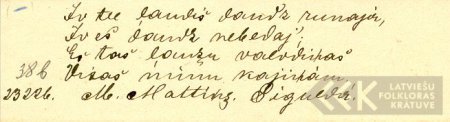 Iv tee laudis daudz runaja,
Iv es daudz nebedaj';
Es tās laužu valodiņas
Visas minu kājiņām.
386
23226. M. Mattiņz. Siguldā.
LATVIEŠU
FOLKLORAS
KRATUVE